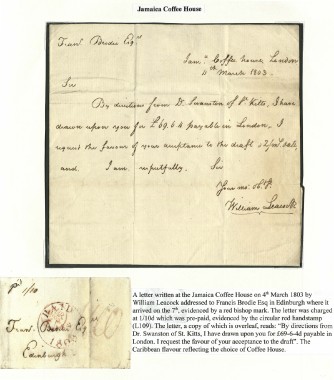 Jamaica Coffee House
Fran.s Brodie Esq.r
Jam.a Coffee house, London
March 1803.
Sir
By direction from Dr. Swanston of St. Kitts, I have
drawn upon you for £69.6.4 payable in London. I
request the favour of your acceptance to the draft
and I am respectfully, Sir
William Leacock
Fran.s Brodie Esq
Edinburgh
A letter written at the Jamaica Coffee House on 4th March 1803 by
William Leacock addressed to Francis Brodie Esq in Edinburgh where it
arrived on the 7th, evidenced by a red bishop mark. The letter was charged
at 1/10d which was pre-paid, evidenced by the circular red handstamp
(L109). The letter, a copy of which is overleaf, reads: "By directions from
Dr. Swanston of St. Kitts, I have drawn upon you for £69-6-4d payable in
London. I request the favour of your acceptance to the draft". The
Caribbean flavour reflecting the choice of Coffee House.